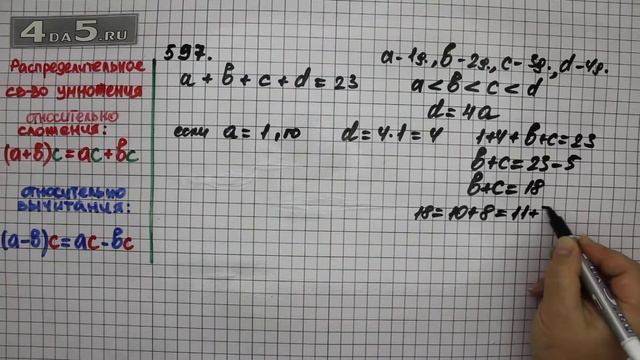 4DA5.RU
Распределительное
св-во умножения
относительно
сложения:
(a+b)c=ac+bc
относительно
вычитания:
(a-b)c=ac-bc
597.
a-1д., b-2д., c-3д., d-4д.
a+b+c+d=23
a<b<c<d
d=4a
если a=1, то d=4·1=4
1+4+b+c=23
b+c=23-5
b+c=18
18=10+8=11+